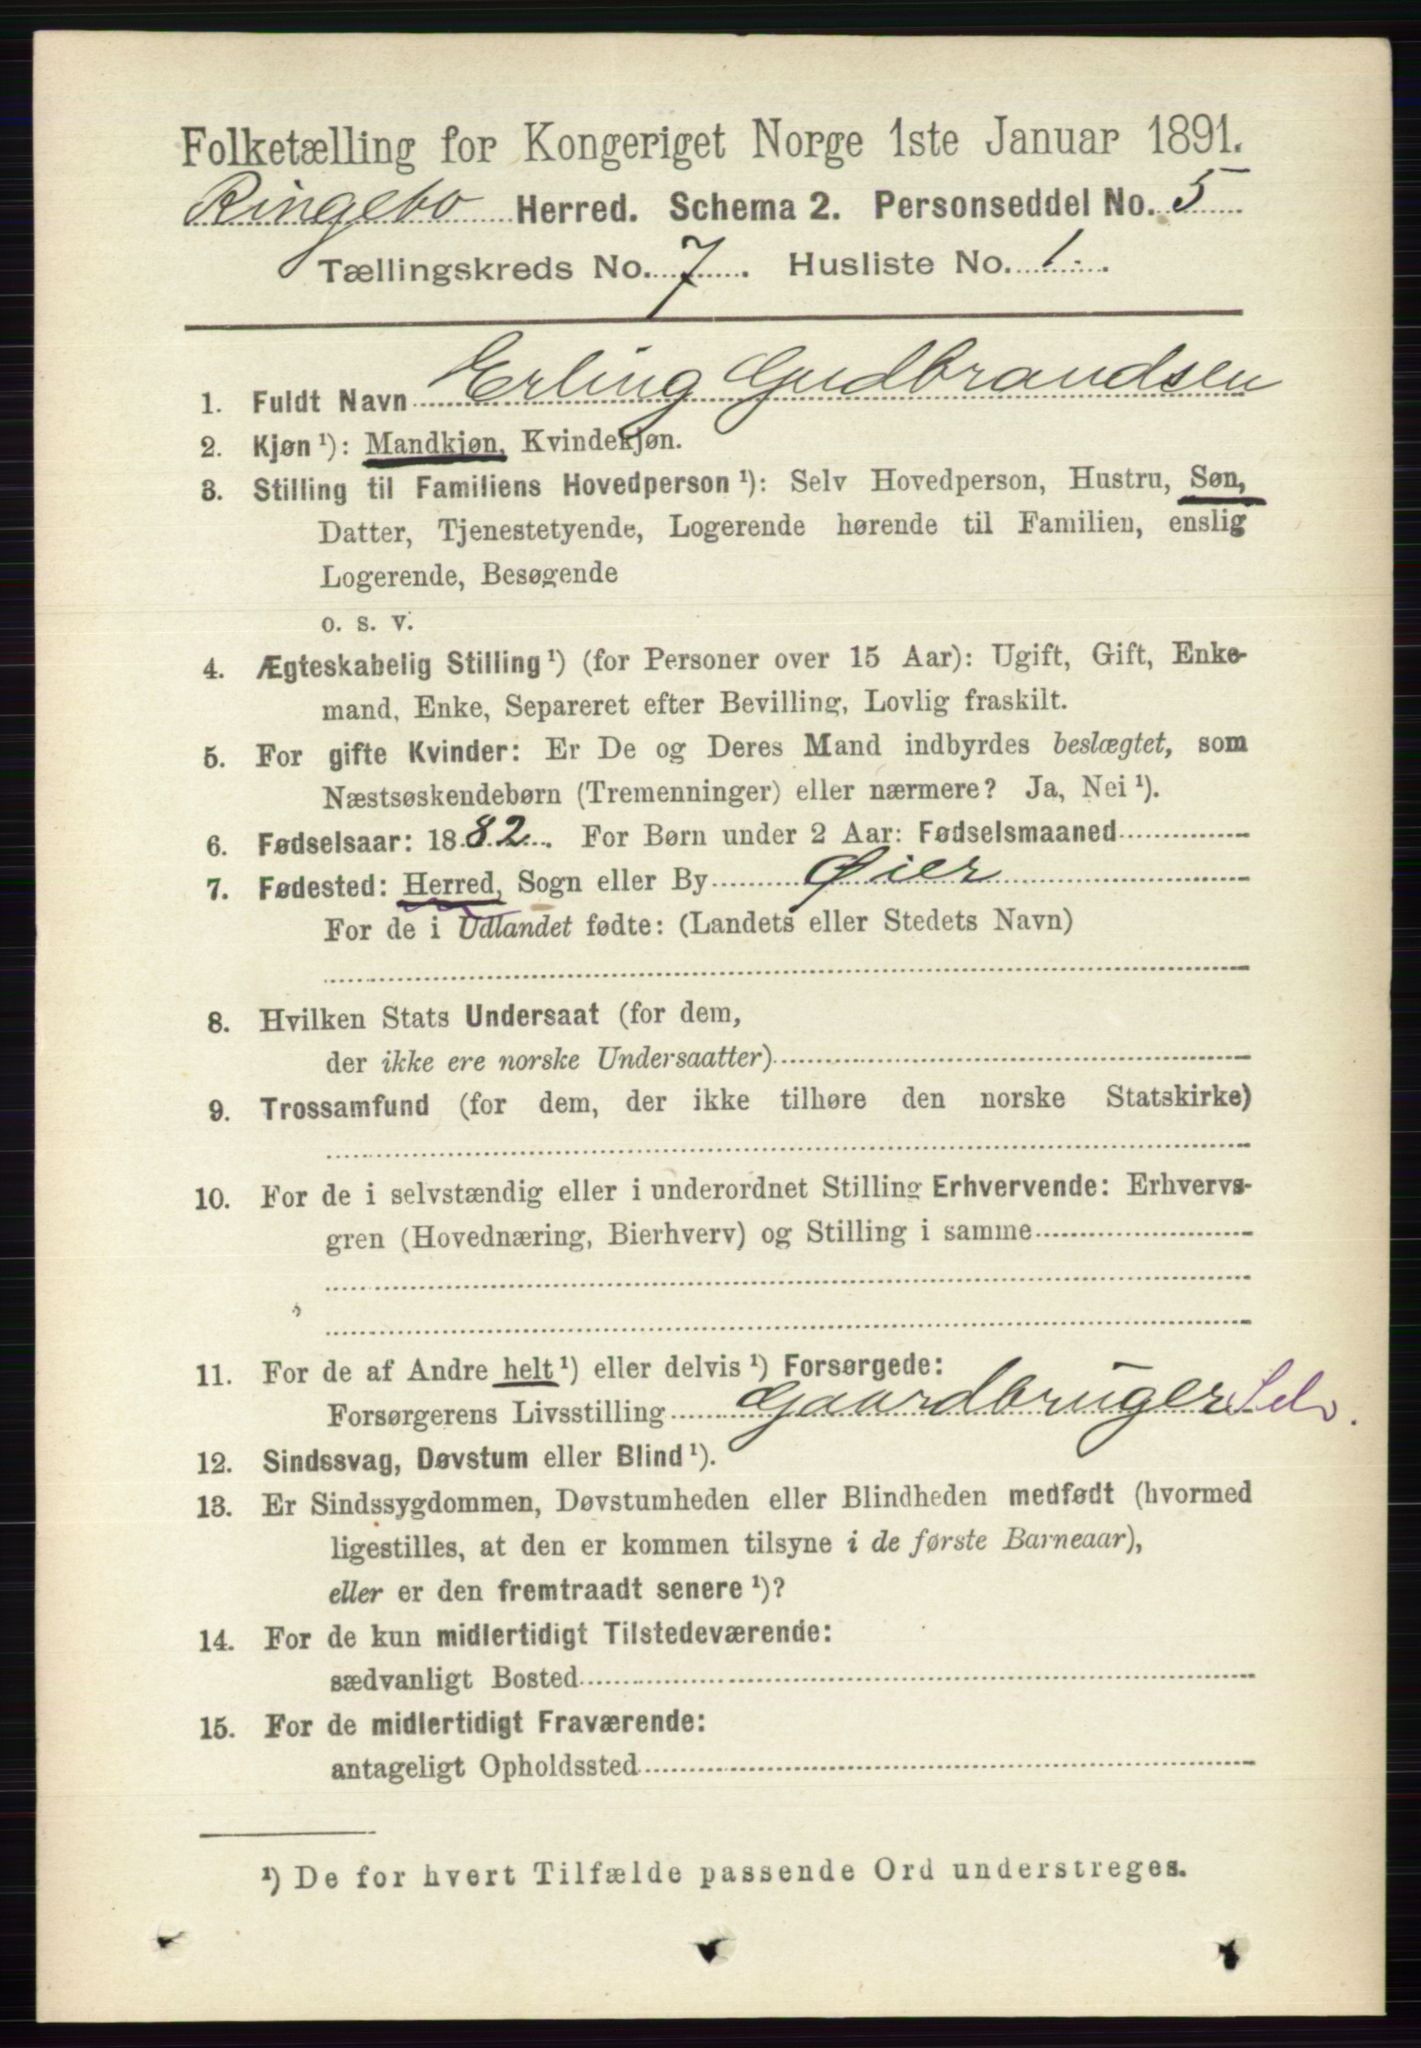 Folketælling for Kongeriget Norge 1ste Januar 1891.
Ringebo Herred. Schema 2. Personseddel No. 5
Tællingskreds No. 7. Husliste No. 1.
1. Fuldt Navn Erling Gudbrandsen
2. Kjøn ¹): Mandkjøn, Kvindekjøn.
3. Stilling til Familiens Hovedperson ¹): Selv Hovedperson, Hustru, Søn,
Datter, Tjenestetyende, Logerende hørende til Familien, enslig
Logerende, Besøgende
o. s. v.
4. Ægteskabelig Stilling ¹) (for Personer over 15 Aar): Ugift, Gift, Enke-
mand, Enke, Separeret efter Bevilling, Lovlig fraskilt.
5. For gifte Kvinder: Er De og Deres Mand indbyrdes beslægtet, som
Næstsøskendebørn (Tremenninger) eller nærmere? Ja, Nei ¹).
6. Fødselsaar: 1882. For Børn under 2 Aar: Fødselsmaaned
7. Fødested: Herred, Sogn eller By Øier
For de i Udlandet fødte: (Landets eller Stedets Navn)
8. Hvilken Stats Undersaat (for dem,
der ikke ere norske Undersaatter)
9. Trossamfund (for dem, der ikke tilhøre den norske Statskirke)
10. For de i selvstændig eller i underordnet Stilling Erhvervende: Erhvervs-
gren (Hovednæring, Bierhverv) og Stilling i samme
11. For de af Andre helt ¹) eller delvis ¹) Forsørgede:
Forsørgerens Livsstilling Gaardbruger Selv.
12. Sindssvag, Døvstum eller Blind ¹).
13. Er Sindssygdommen, Døvstumheden eller Blindheden medfødt (hvormed
ligestilles, at den er kommen tilsyne i de første Barneaar),
eller er den fremtraadt senere ¹)?
14. For de kun midlertidigt Tilstedeværende:
sædvanligt Bosted
15. For de midlertidigt Fraværende:
antageligt Opholdssted
¹) De for hvert Tilfælde passende Ord understreges.